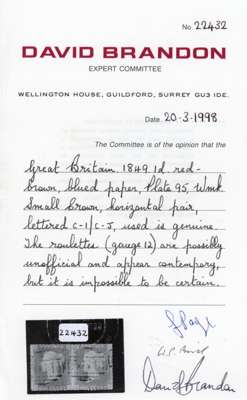 No. 22432
DAVID BRANDON
EXPERT COMMITTEE
WELLINGTON HOUSE, GUILDFORD, SURREY GU3 1DE.
Date. 20-3-1998
The Committee is of the opinion that the
Great Britain 1849 1d red-
brown, blued paper, Plate 95, Wmk
Small Crown, horizontal pair,
lettered C-I/C-J, used is genuine.
The roulettes (gauge 12) are possibly
unofficial and appear contempory,
but it is impossible to be certain.
22432
David Brandon